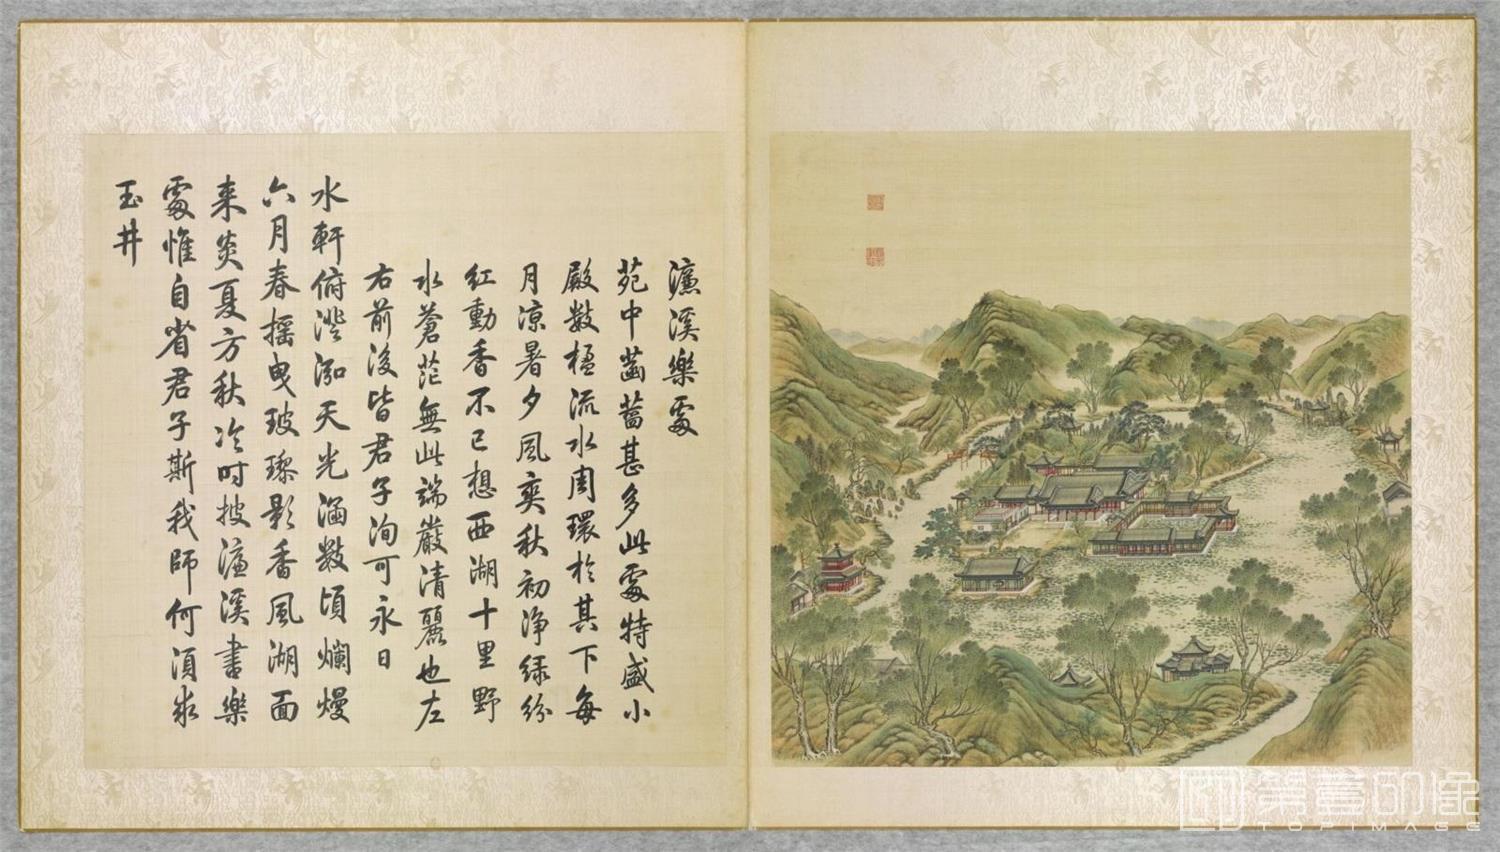 濂溪樂處
苑中菡萏甚多此處特盛小
殿數楹流水周環於其下每
月涼暑夕風爽秋初淨綠紛
紅動香不已想西湖十里野
水蒼茫無此端嚴清麗也左
右前後皆君子洵可永日
水軒俯澄泓天光涵數頃爛熳
六月春搖曳玻瓈影香風湖面
来炎夏方秋冷時披濂溪書樂
處惟自省君子斯我師何須求
玉井
第壹印像
TOPIMAGE